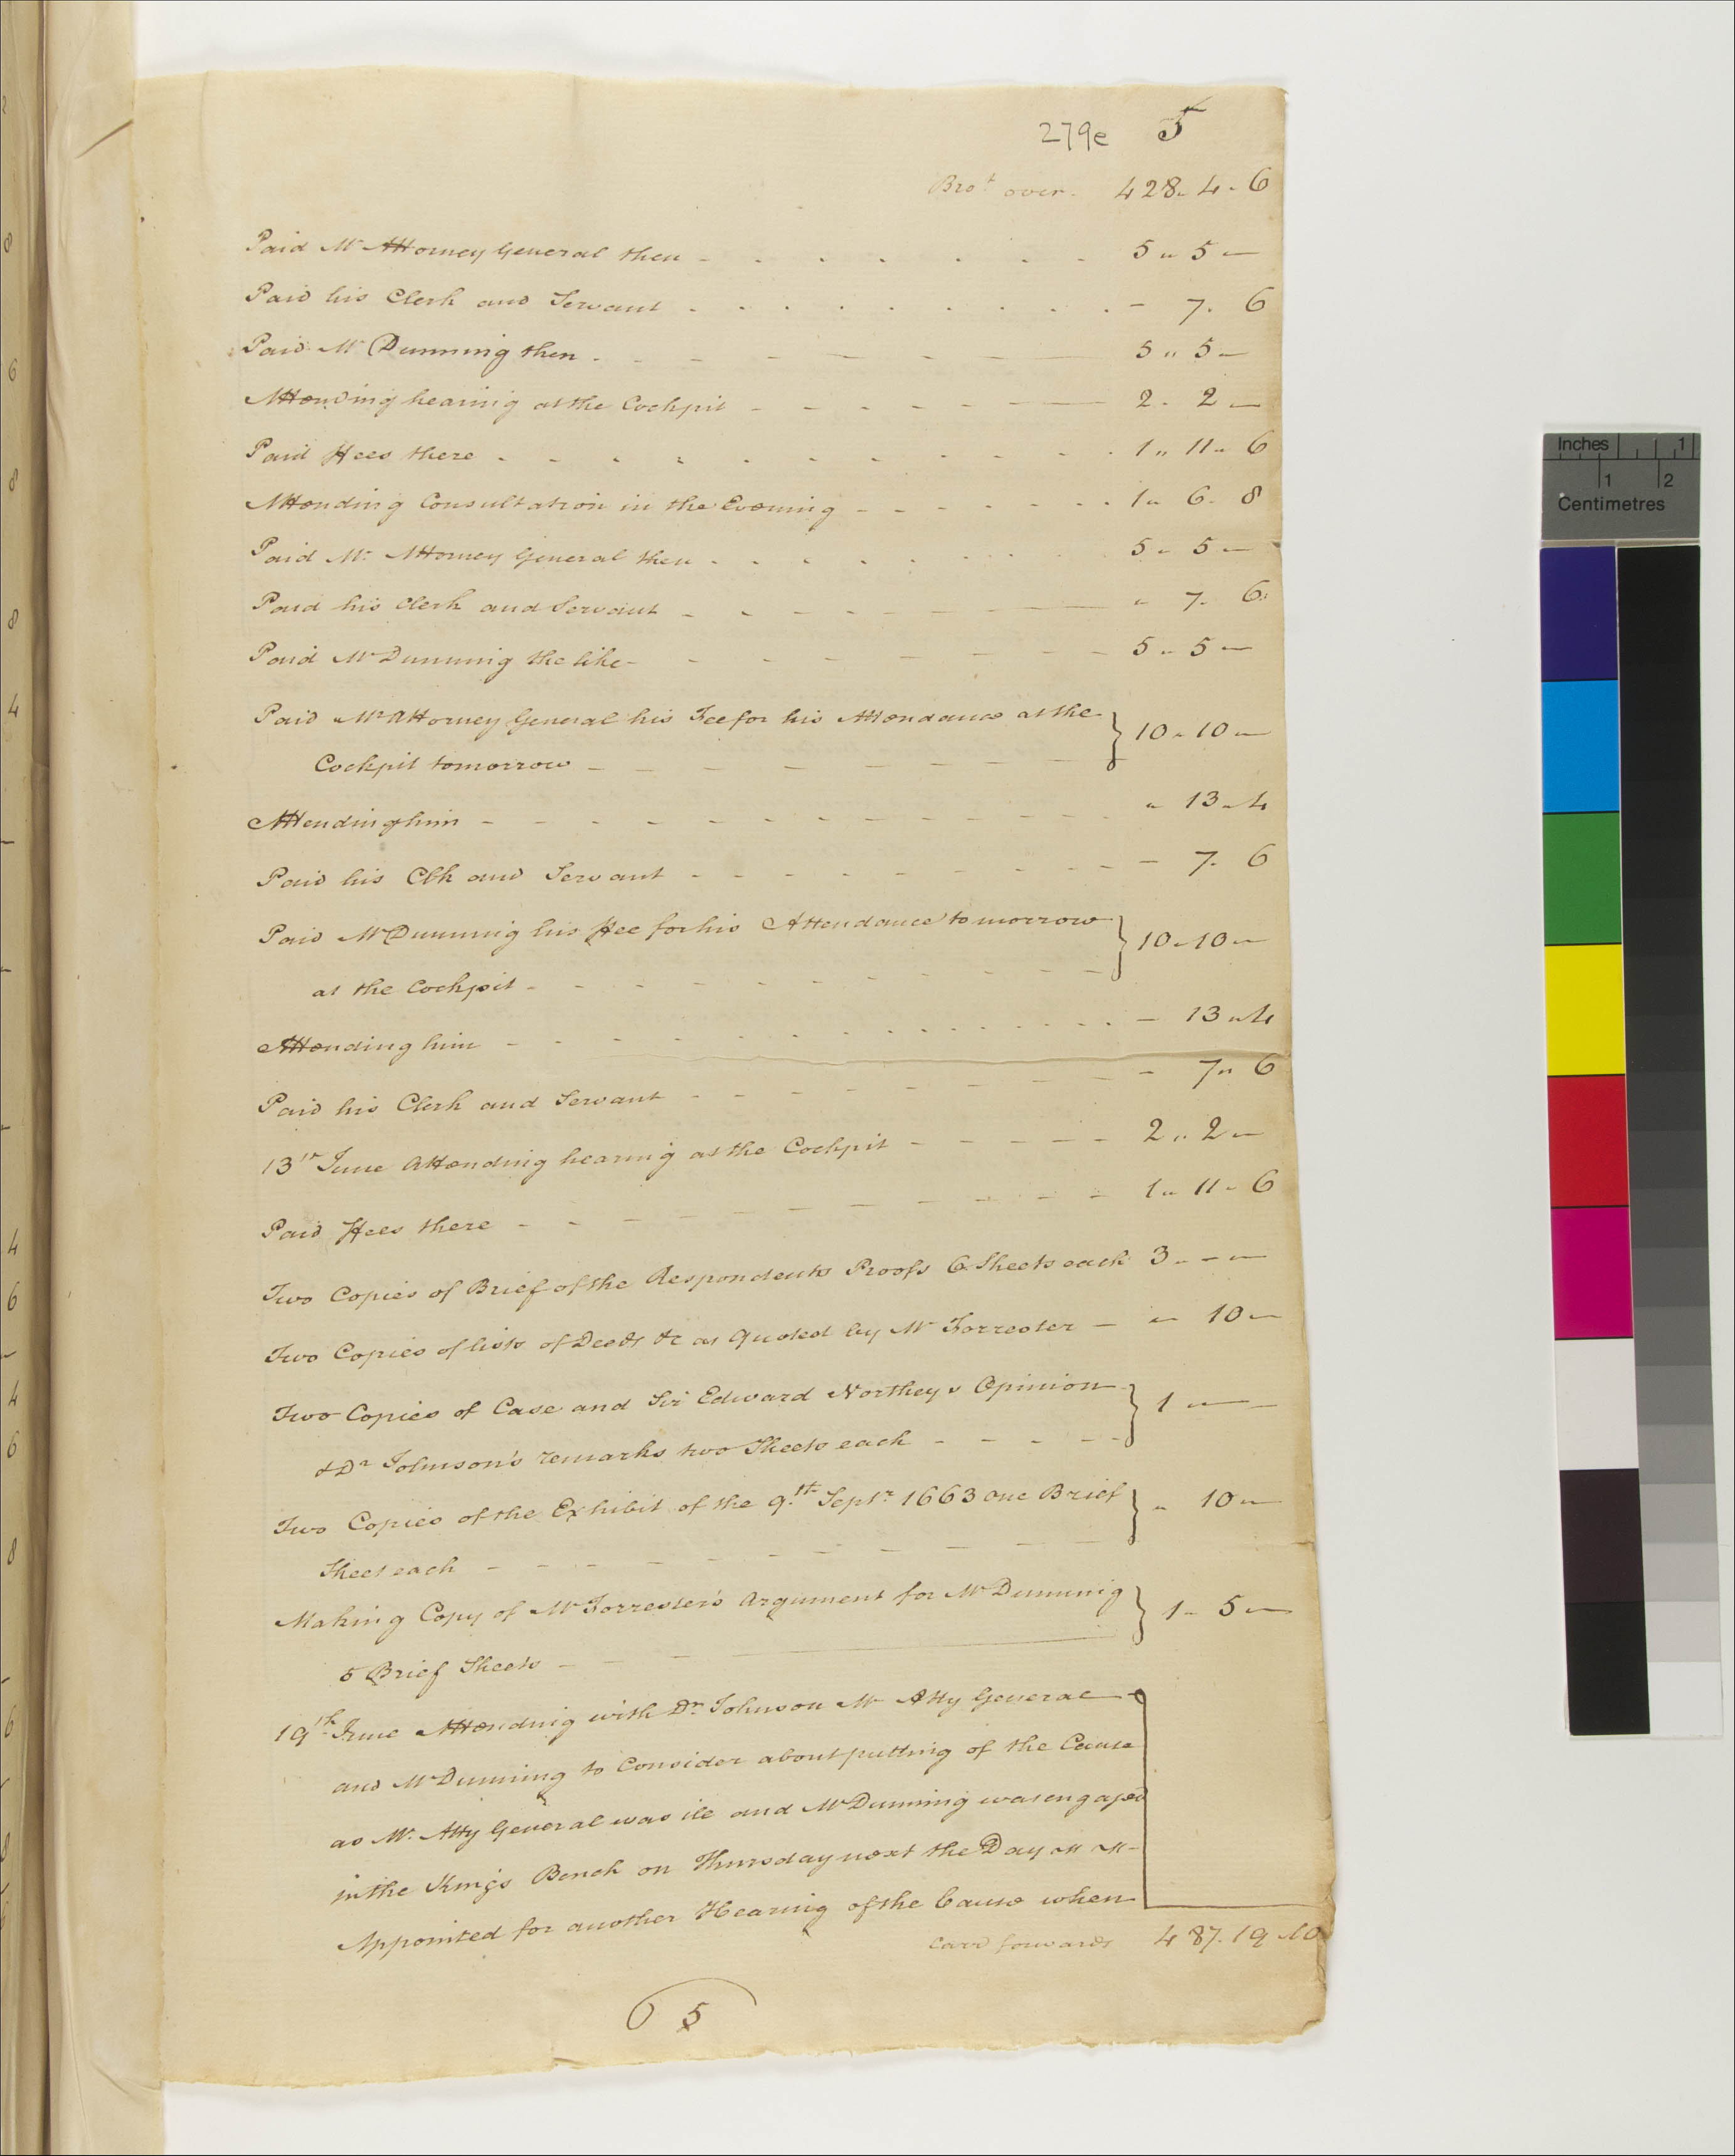 279e 5
Bro.t over. 428. 4. 6
Paid Mr Attorney General then - 5 " 5 -
Paid his Clerk and Servant - 7. 6
Paid Mr Dunning then - 5 " 5 -
Attending hearing at the Cockpit - 2. 2 -
Paid ffees there - 1 " 11 " 6
Attending Consultation in the Evening - 1 " 6. 8
Paid Mr. Attorney General then - 5 " 5 -
Paid his Clerk and Servant - " 7. 6
Paid Mr Dunning the like - 5 " 5 -
Paid Mr Attorney General his Fee for his Attendance at the
Cockpit tomorrow - 10 " 10 -
Attending him - " 13 " 4
Paid his Clk and Servant - 7. 6
Paid Mr Dunning his ffee for his Attendance tomorrow
at the Cockpit - 10 " 10 -
Attending him - 13 " 4
Paid his Clerk and Servant - 7 " 6
13th June Attending hearing at the Cockpit - 2 " 2 -
Paid ffees there - 1 " 11 " 6
Two Copies of Brief of the Respondents Proofs 6 Sheets each 3 - - -
Two Copies of lists of Deeds &c as quoted by Mr Forrester - " 10 -
Two Copies of Case and Sir Edward Northeys Opinion
& Dr Johnson's remarks two Sheets each - 1 " -
Two Copies of the Exhibit of the 9.th Septr. 1663 One Brief
Sheet each - " 10 -
Making Copy of Mr Forrester's Argument for Mr Dunning
5 Brief Sheets - 1 " 5 -
19th June Attending with Dr. Johnson Mr Atty General
and Mr Dunning to Consider about putting of the Cause
as Mr. Atty General was ill and Mr Dunning was engaged
in the Kings Bench on Thursday next the Day
Appointed for another Hearing of the Cause when
Carrd forwards 487. 19. 10
5
Inches 1
1 2
Centimetres